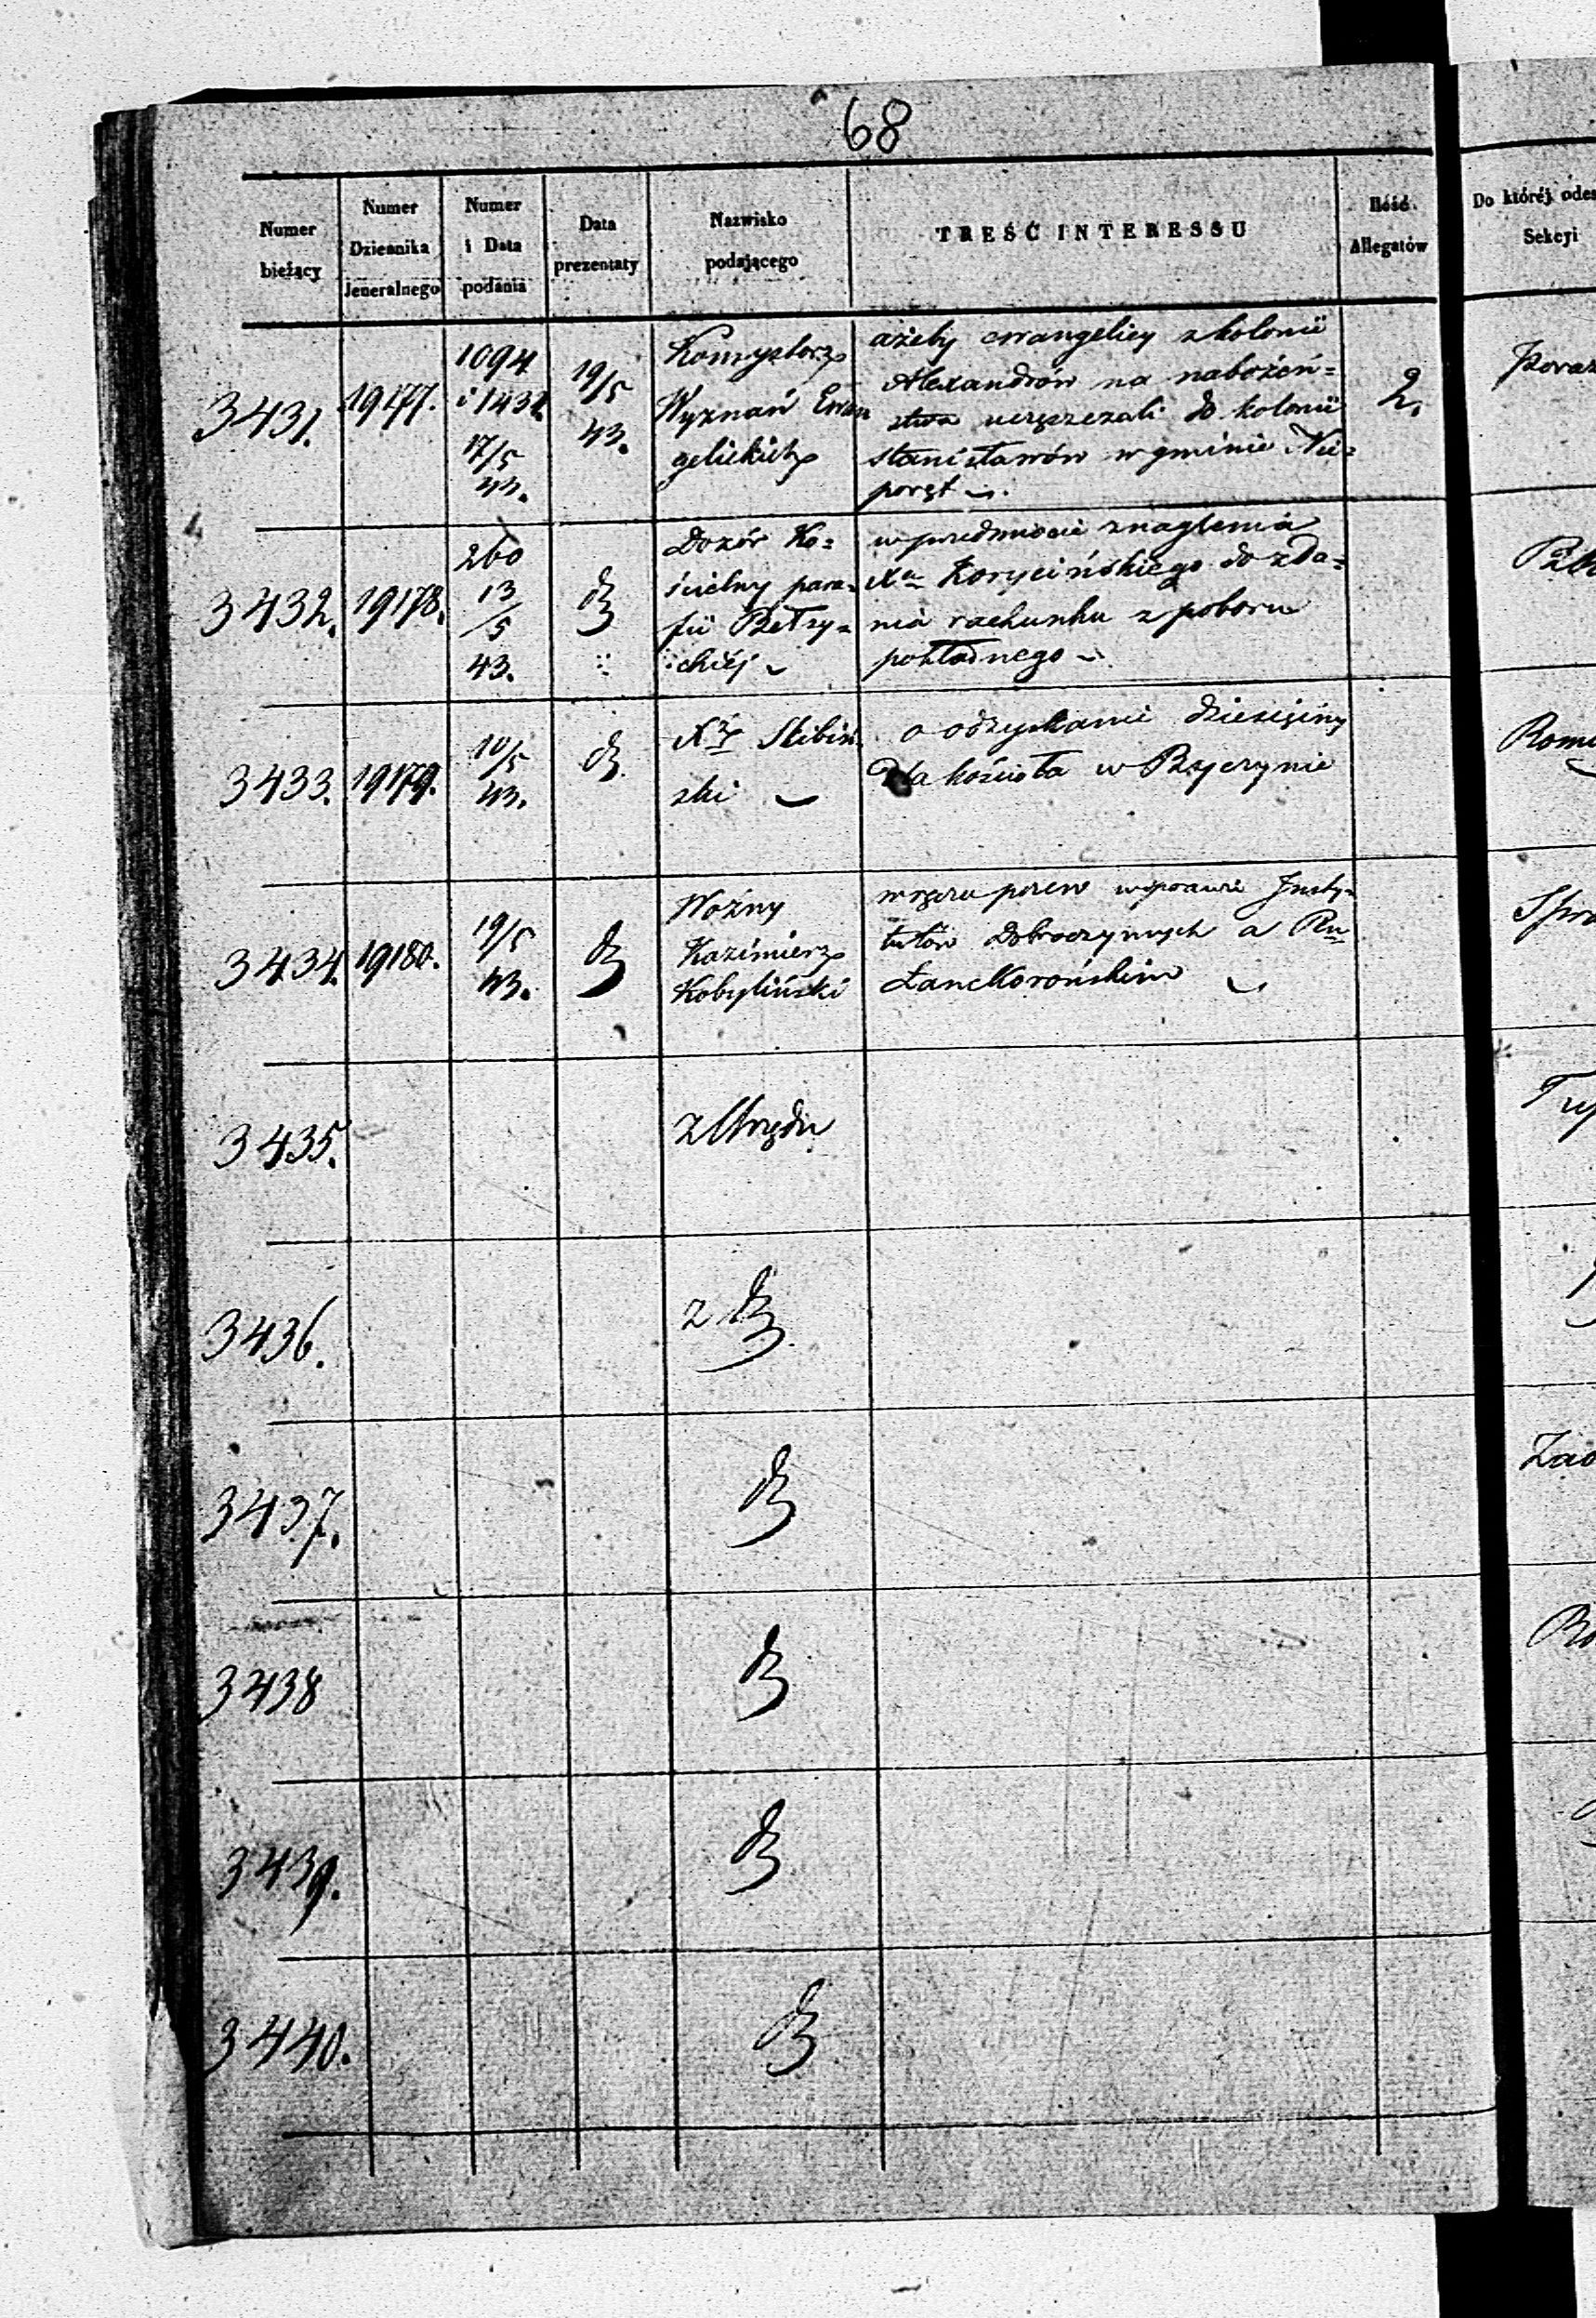 68
Numer bieżący
Numer Dziennika Jeneralnego
Numer i Data podania
Data prezentaty
Nazwisko podającego
TREŚĆ INTERESSU
Ilość Allegatów
Do któréj odes
Sekcyi
3431.
19177.
1094
i 1431.
17/5
43.
19/5
43.
Konsystorz
Wyznań Ewan
gelickich
ażeby ewangelicy z kolonii
Alexandrów na nabożeń=
stwa uczęszczali do kolonii
Stanisławów w gminie Nie=
poręt
2.
3432.
19178.
260
13
/5
43.
dt
Dozór Ko=
ścielny para=
fii
chiéj
w przedmiocie znaglenia
Xa Korycińskiego do zda=
nia rachunku z poboru
pokładnego
3433.
19179.
10/5
43.
dt
Xdz Skibiń
ski
o odzyskanie dziesięciny
dla kościoła w
Rom
3434.
19180.
19/5
43.
dt
Woźny
Kazimierz
Kobyliński
wręcza pozew w sprawie Insty=
tutów Dobroczynnych a
Łanckorońskim
Spra
3435.
z Urzędu
3436.
z dt
3437.
dt
3438
dt
3439.
dt
3440.
dt